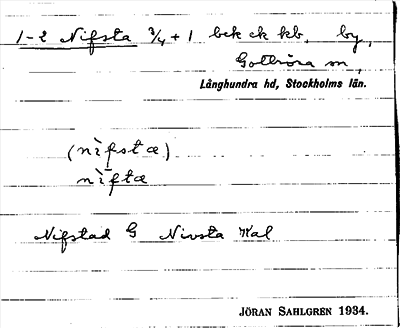 1-2 Nifsta 3/4 + 1 bck ck kb, by,
Gottröra sn,
Långhundra hd, Stockholms län.
(nìfstæ)
nìftæ
Nifstad G Nivsta Kal
JÖRAN SAHLGREN 1934.